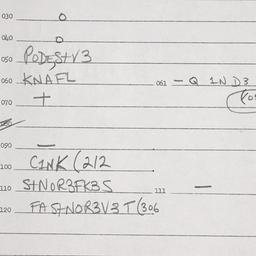 030 o
040 o
050 PODESTV3
060 KNAFL 061 - Q 1ND3
070 +
090 —
100 C1NK (212
110 STNOR3FKBS 111 —
120 FASTNOR3V3T (306